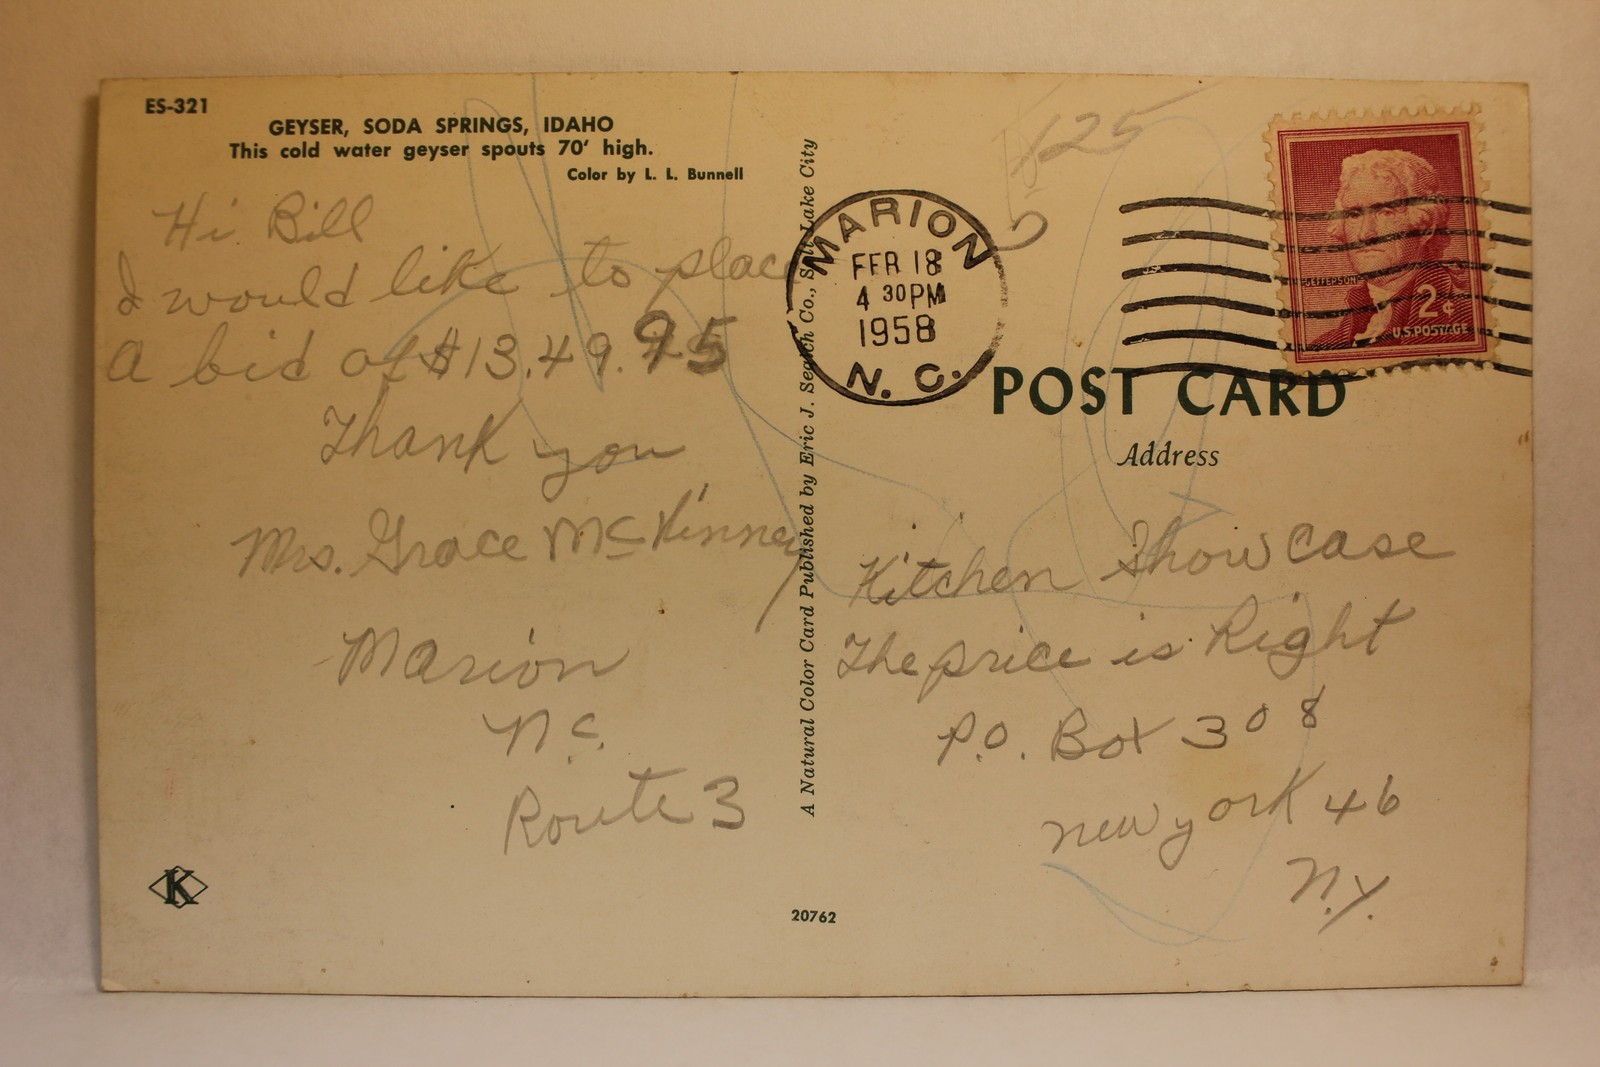 ES-321
GEYSER, SODA SPRINGS, IDAHO
This cold water geyser spouts 70' high.
Color by L. L. Bunnell
Hi Bill
I would like to place
a bid of $13.49.95
Thank you
Mrs. Grace McKinney
Marion
n c.
Route 3
K
A Natural Color Card Published by Eric J. Seaich Co., Salt Lake City
20762
MARION
FEB 18
4 30PM
1958
N. C.
125
JEFFERSON
2¢
U.S. POSTAGE
POST CARD
Address
Kitchen Showcase
The price is Right
P.O. Box 308
new york 46
n.y.